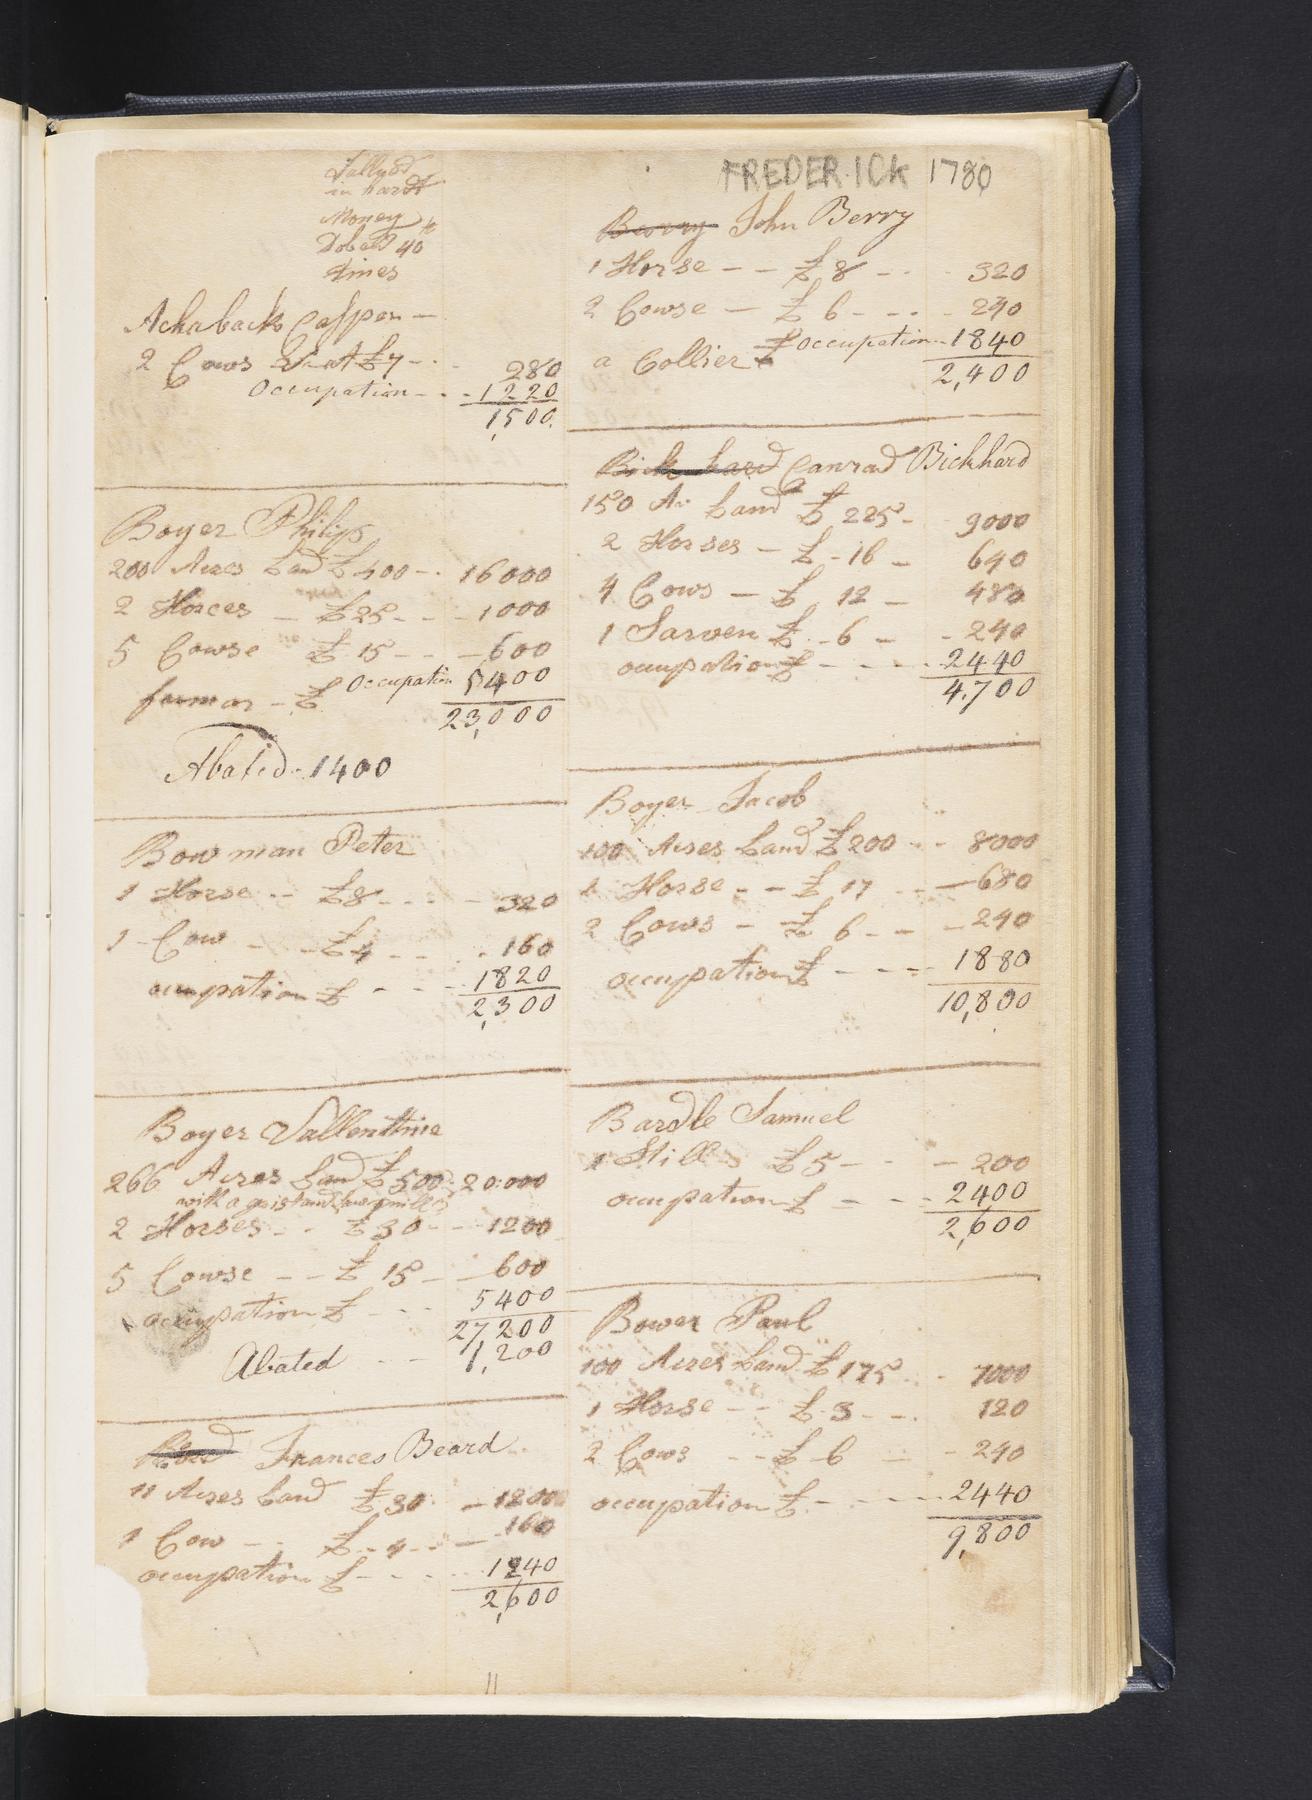 FREDERICK 1780
in hard
Money
40
times
Achaback Casper
2 Cows at £7 280
Occupation 1220
1,500
Boyer Philips
200 Acres Land £400 16000
2 Horces £25 1000
5 Cowse £15 600
farmar £ Occupation 5400
23,000
Abated 1400
Bowman Peter
1 Horse £8 320
1 Cow £4 160
occupation £ 1820
2,300
Boyer Vallenthine
266 Acres Land £500 20000
with a grist and
2 Horses £30 1200
5 Cowse £15 600
occupation £ 5400
27,200
Abated 1,200
Frances Beard
11 Acres Land £30 1200
1 Cow £4 160
occupation £ 1240
2,600
11
Berry John Berry
1 Horse £8 320
2 Cowse £6 240
a Collier £ Occupation 1840
2,400
Bickhard Conrad Bickhard
150 Ar Land £225 9000
2 Horses £16 640
4 Cows £12 480
1 Sarven £6 240
occupation £ 2440
4,700
Boyer Jacob
100 Acres Land £200 8000
1 Horse £17 680
2 Cows £6 240
occupation £ 1880
10,800
Bardle Samuel
1 Still £5 200
occupation £ 2400
2,600
Bower Paul
100 Acres Land £175 7000
1 Horse £3 120
2 Cows £6 240
occupation £ 2440
9,800